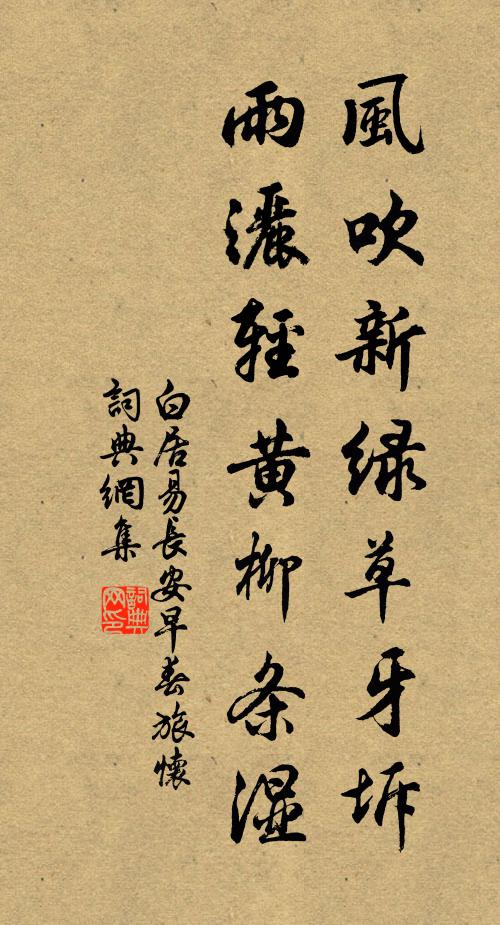 風吹新綠草牙坼
雨灑輕黃柳条濕
白居易長安早春旅懷
詞典網集
詞典
网印